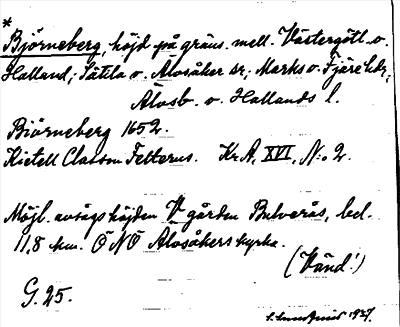 *
Björneberg, höjd på gräns. mell. Västergötl. o.
Halland; Sätila o. Älvsåker sr; Marks o. Fjäre hdr;
Älvsb. o. Hallands l.
Biörneberg 1652.
Kietell Classon Felterus. Kr. A, XVI, N:o 2.
Möjl. avsågs höjden V gården Bulverås, bel.
11,8 km. ÖNÖ Älvsåkers kyrka.
(Vänd!)
G. 25.
1937.